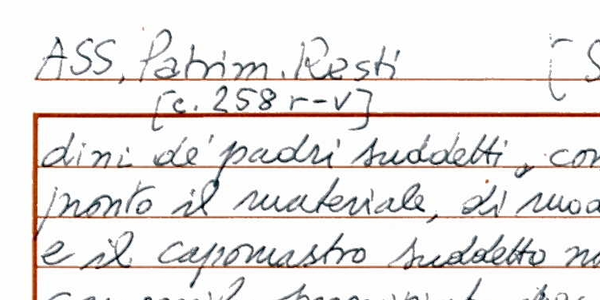 ASS, Patrim. Resti [
[c. 258 r-v]
dini de' padri suddetti, con
pronto il materiale, di mod
e il capomastro suddetto